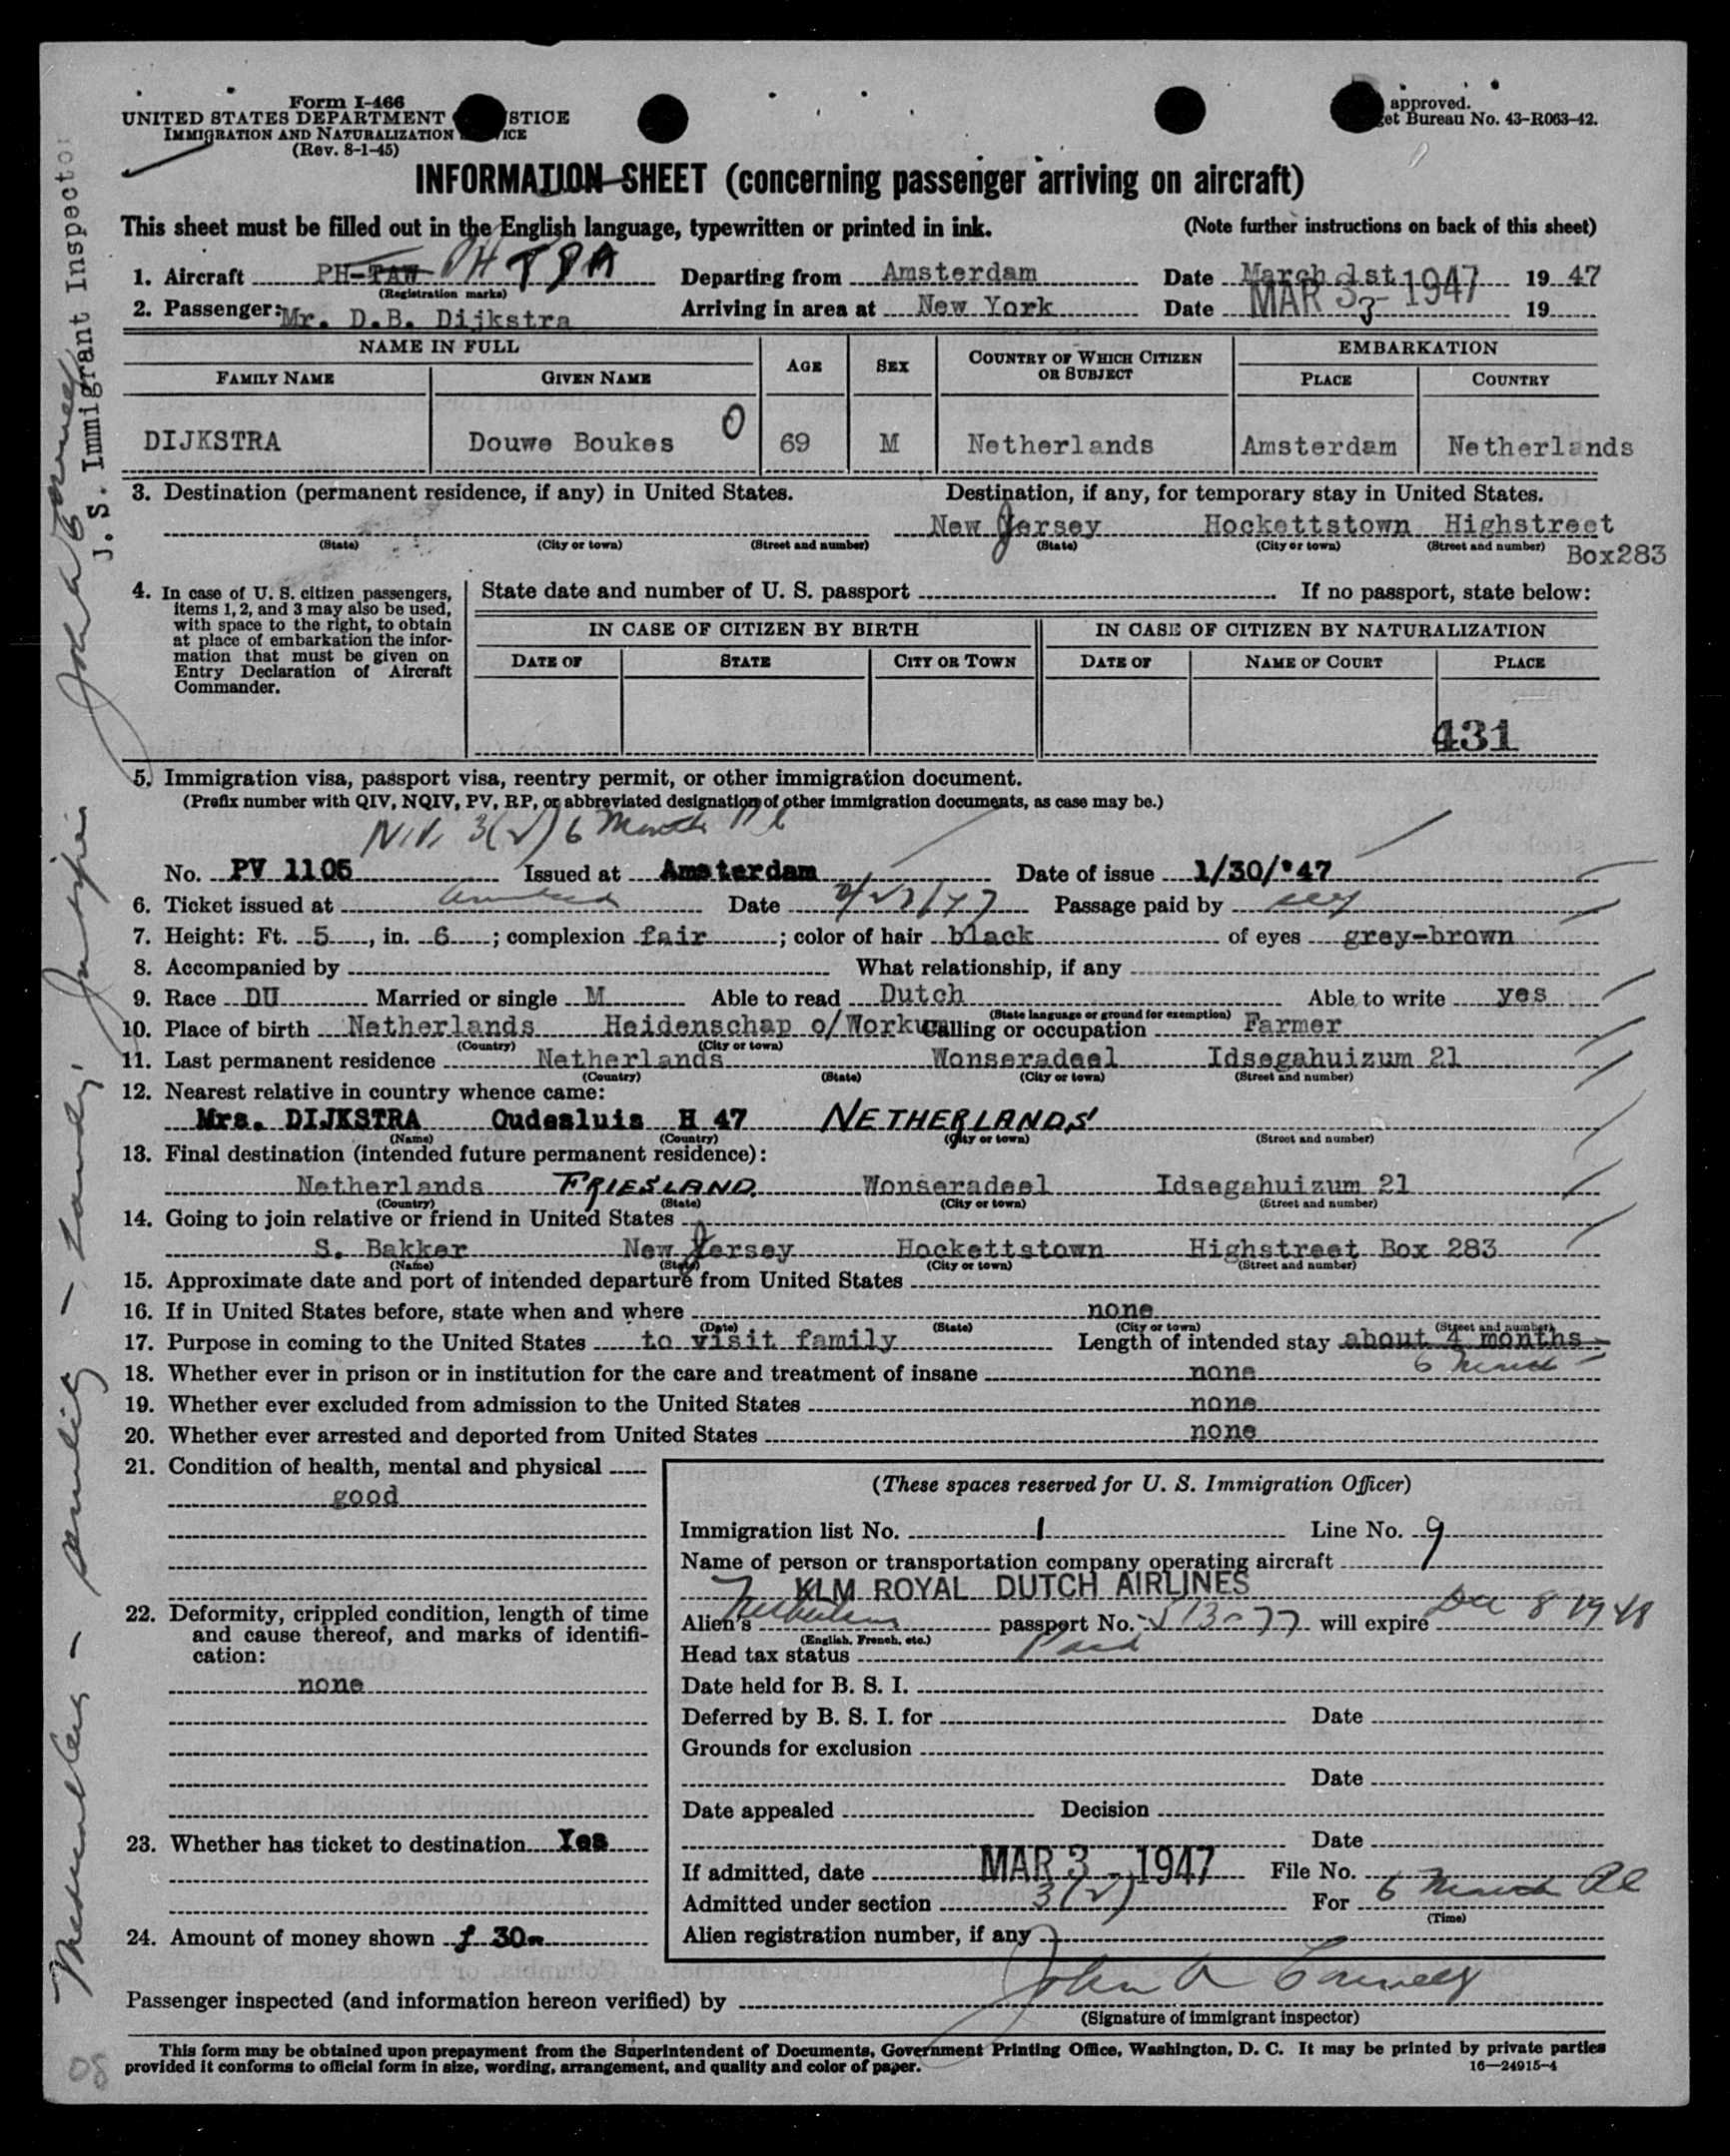 Form I-466
UNITED STATES DEPARTMENT STICE
IMMIGRATION AND NATURALIZATION ICE
(Rev. 8-1-45)
approved.
et Bureau No. 43-R063-42.
INFORMATION SHEET (concerning passenger arriving on aircraft)
This sheet must be filled out in the English language, typewritten or printed in ink. (Note further instructions on back of this sheet)
1. Aircraft PH-TAW PH TPA Departing from Amsterdam Date March 1st 1947 19 47
(Registration marks)
2. Passenger: Mr. D.B. Dijkstra Arriving in area at New York Date MAR 3 - 1947 3 19
NAME IN FULL AGE SEX COUNTRY OF WHICH CITIZEN OR SUBJECT EMBARKATION
FAMILY NAME GIVEN NAME PLACE COUNTRY
DIJKSTRA Douwe Boukes 0 69 M Netherlands Amsterdam Netherlands
3. Destination (permanent residence, if any) in United States. Destination, if any, for temporary stay in United States.
New Jersey Hockettstown Highstreet
(State) (City or town) (Street and number) (State) (City or town) (Street and number) Box283
4. In case of U. S. citizen passengers, items 1, 2, and 3 may also be used, with space to the right, to obtain at place of embarkation the information that must be given on Entry Declaration of Aircraft Commander.
State date and number of U. S. passport If no passport, state below:
IN CASE OF CITIZEN BY BIRTH IN CASE OF CITIZEN BY NATURALIZATION
DATE OF STATE CITY OR TOWN DATE OF NAME OF COURT PLACE
431
5. Immigration visa, passport visa, reentry permit, or other immigration document.
(Prefix number with QIV, NQIV, PV, RP, or abbreviated designation of other immigration documents, as case may be.)
NIV. 3(2) 6 Months Pl
No. PV 1105 Issued at Amsterdam Date of issue 1/30/'47
6. Ticket issued at Date 2/27/47 Passage paid by self
7. Height: Ft. 5, in. 6; complexion fair; color of hair black of eyes grey-brown
8. Accompanied by What relationship, if any
9. Race DU Married or single M Able to read Dutch Able to write yes
(State language or ground for exemption)
10. Place of birth Netherlands Heidenschap o/Workum Calling or occupation Farmer
(Country) (City or town)
11. Last permanent residence Netherlands Wonseradeel Idsegahuizum 21
(Country) (State) (City or town) (Street and number)
12. Nearest relative in country whence came:
Mrs. DIJKSTRA Oudesluis H 47 NETHERLANDS
(Name) (Country) (City or town) (Street and number)
13. Final destination (intended future permanent residence):
Netherlands FRIESLAND. Wonseradeel Idsegahuizum 21
(Country) (State) (City or town) (Street and number)
14. Going to join relative or friend in United States
S. Bakker New Jersey Hockettstown Highstreet Box 283
(Name) (State) (City or town) (Street and number)
15. Approximate date and port of intended departure from United States
16. If in United States before, state when and where none
(Date) (State) (City or town) (Street and number)
17. Purpose in coming to the United States to visit family Length of intended stay about 4 months
6 Months
18. Whether ever in prison or in institution for the care and treatment of insane none
19. Whether ever excluded from admission to the United States none
20. Whether ever arrested and deported from United States none
21. Condition of health, mental and physical
good
22. Deformity, crippled condition, length of time and cause thereof, and marks of identification:
none
23. Whether has ticket to destination Yes
24. Amount of money shown f 30-
(These spaces reserved for U. S. Immigration Officer)
Immigration list No. 1 Line No. 9
Name of person or transportation company operating aircraft
KLM ROYAL DUTCH AIRLINES
Alien's passport No. will expire Dec 8 1948
(English, French, etc.)
Head tax status Paid
Date held for B. S. I.
Deferred by B. S. I. for Date
Grounds for exclusion
Date
Date appealed Decision
Date
If admitted, date MAR 3 - 1947 File No.
Admitted under section 3(2) For 6 Months Pl
(Time)
Alien registration number, if any
Passenger inspected (and information hereon verified) by John
(Signature of immigrant inspector)
This form may be obtained upon prepayment from the Superintendent of Documents, Government Printing Office, Washington, D. C. It may be printed by private parties
provided it conforms to official form in size, wording, arrangement, and quality and color of paper. 16—24915-4
08
. S. Immigrant Inspector